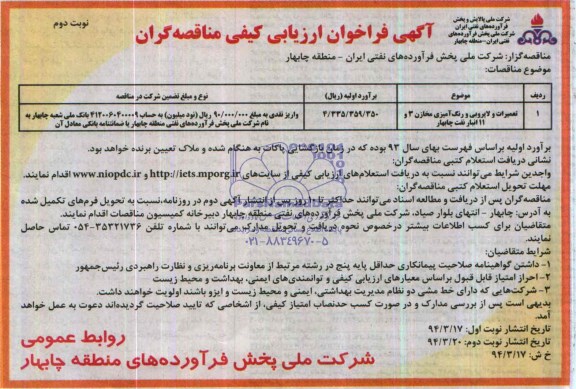 نوبت دوم
شرکت ملی پالایش و پخش
فرآورده‌های نفتی ایران
شرکت ملی پخش فرآورده‌های
نفتی ایران-منطقه چابهار
آگهی فراخوان ارزیابی کیفی مناقصه‌گران
مناقصه‌گزار: شرکت ملی پخش فرآورده‌های نفتی ایران - منطقه چابهار
موضوع مناقصات:
ردیف موضوع برآورد اولیه (ریال) نوع و مبلغ تضمین شرکت در مناقصه
۱ تعمیرات و لایروبی و رنگ‌آمیزی مخازن ۳ و ۴/۳۳۵/۳۵۹/۳۵۰ واریز نقدی به مبلغ ۹۰/۰۰۰/۰۰۰ ریال (نود میلیون) به حساب ۴۱۲۰۰۶۰۴۰۰۰۰۹ بانک ملی شعبه چابهار به
۱۱ انبار نفت چابهار نام شرکت ملی پخش فرآورده‌های نفتی منطقه چابهار یا ضمانتنامه بانکی معادل آن
برآورد اولیه براساس فهرست بهای سال ۹۳ بوده که در زمان بازگشایی پاکات به هنگام شده و ملاک تعیین برنده خواهد بود.
نشانی دریافت استعلام کتبی مناقصه‌گران:
واجدین شرایط می‌توانند نسبت به دریافت استعلام‌های ارزیابی کیفی از سایت‌های http://iets.mporg.ir و www.niopdc.ir اقدام نمایند.
مهلت تحویل استعلام کتبی مناقصه‌گران:
مناقصه‌گران پس از دریافت و مطالعه اسناد می‌توانند حداکثر تا ۱۰ روز پس از انتشار آگهی دوم در روزنامه،نسبت به تحویل فرم‌های تکمیل شده
به آدرس: چابهار - انتهای بلوار صیاد، شرکت ملی پخش فرآورده‌های نفتی منطقه چابهار دبیرخانه کمیسیون مناقصات اقدام نمایند.
متقاضیان برای کسب اطلاعات بیشتر درخصوص نحوه دریافت و تحویل مدارک می‌توانند با شماره تلفن ۳۵۳۲۱۷۳۶-۰۵۴ تماس حاصل
نمایند.
۰۲۱-۸۸۳۴۹۶۷۰-۵
شرایط متقاضیان:
۱- داشتن گواهینامه صلاحیت پیمانکاری حداقل پایه پنج در رشته مرتبط از معاونت برنامه‌ریزی و نظارت راهبردی رئیس‌جمهور
۲- احراز امتیاز قابل قبول براساس معیارهای ارزیابی کیفی و توانمندی‌های ایمنی، بهداشت و محیط زیست
۳- شرکت‌هایی که دارای خط مشی دو نظام مدیریت بهداشتی، ایمنی و محیط زیست و ایزو باشند اولویت خواهند داشت.
بدیهی است پس از بررسی مدارک و در صورت کسب حدنصاب امتیاز کیفی، از اشخاصی که تایید صلاحیت گردیده‌اند دعوت به عمل خواهد
آمد.
تاریخ انتشار نوبت اول: ۹۴/۳/۱۷
تاریخ انتشار نوبت دوم: ۹۴/۳/۲۰
خ ش: ۹۴/۳/۱۷
روابط عمومی
شرکت ملی پخش فرآورده‌های منطقه چابهار